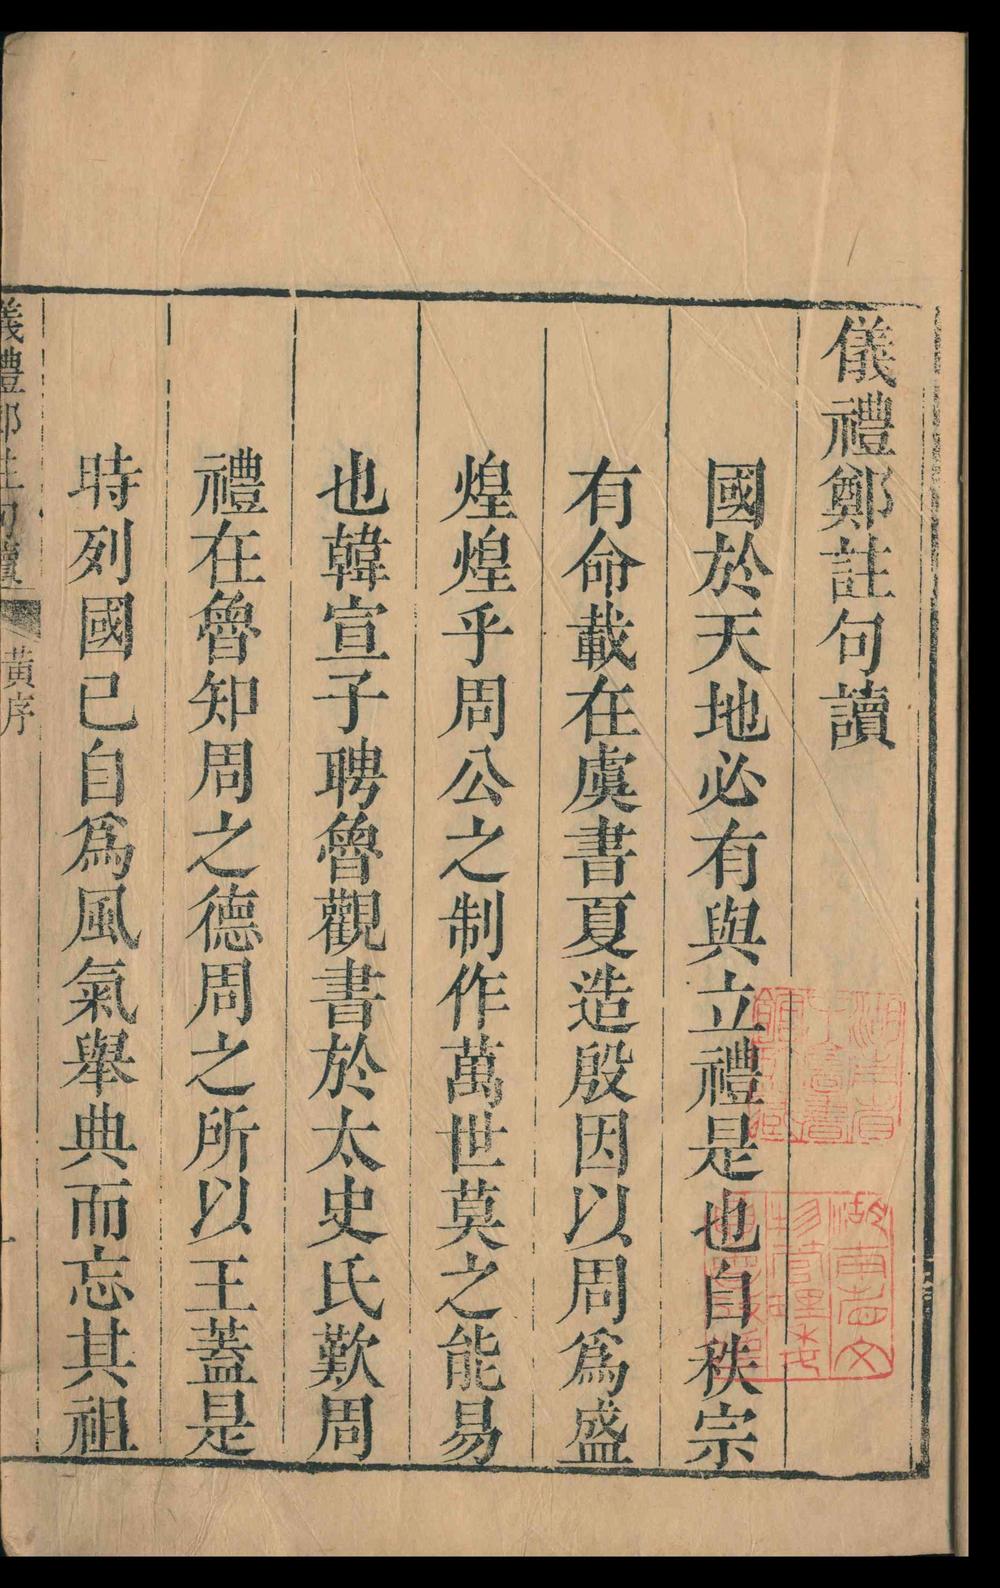 儀禮鄭註句讀
國於天地必有與立禮是也自秩宗
有命載在虞書夏造殷因以周爲盛
煌煌乎周公之制作萬世莫之能易
也韓宣子聘魯觀書於太史氏歎周
禮在魯知周之德周之所以王蓋是
時列國已自爲風氣舉典而忘其祖
儀禮鄭註句讀 黃序 一